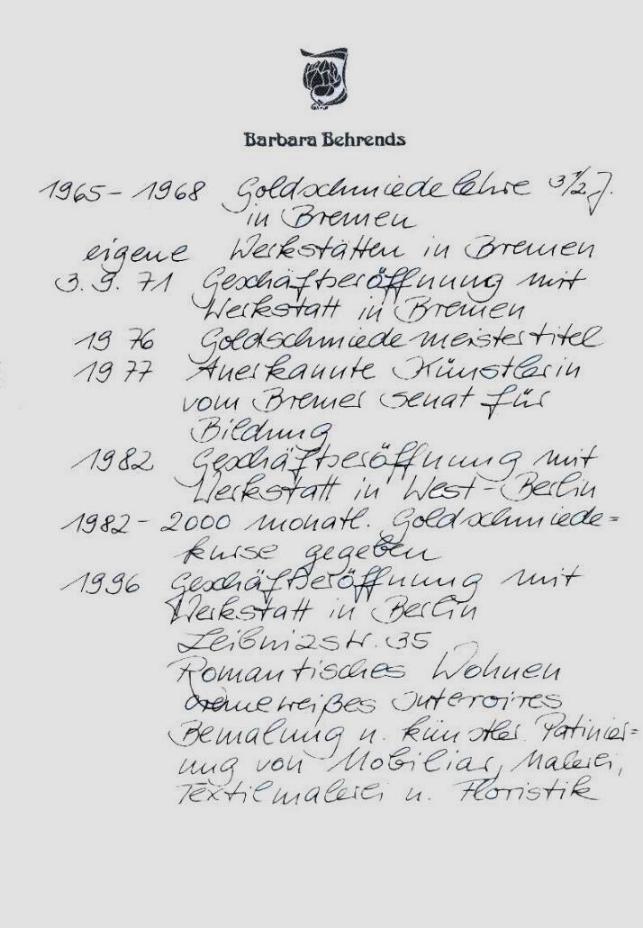 Barbara Behrends
1965 - 1968 Goldschmiedelehre 3 1/2 J.
in Bremen
eigene Werkstätten in Bremen
3. 9. 71 Geschäftseröffnung mit
Werkstatt in Bremen
1976 Goldschmiedemeistertitel
1977 Anerkannte Künstlerin
vom Bremer Senat für
Bildung
1982 Geschäftseröffnung mit
Werkstatt in West-Berlin
1982 - 2000 monatl. Goldschmiede=
kurse gegeben
1996 Geschäftseröffnung mit
Werkstatt in Berlin
Leibnizstr. 35
Romantisches Wohnen
cremeweißes Interoires
Bemalung u. künstler. Patinier=
ung von Mobiliar, Malerei,
Textilmalerei u. Floristik